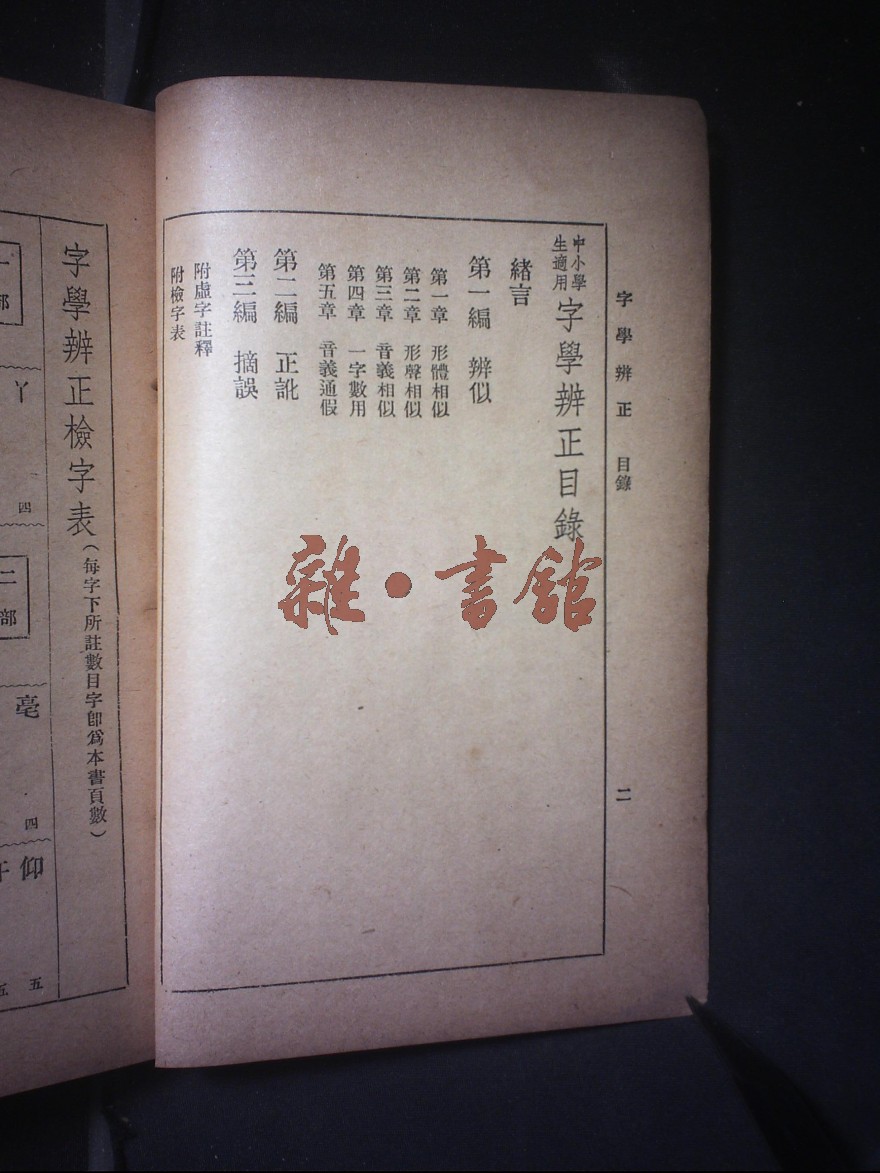 字學辨正 目錄 二
中小學生適用 字學辨正目錄
緒言
第一編 辨似
第一章 形體相似
第二章 形聲相似
第三章 音義相似
第四章 一字數用
第五章 音義通假
第二編 正訛
第三編 摘誤
附虛字註釋
附檢字表
雜·書館
字學辨正檢字表(每字下所註數目字卽爲本書頁數)
丫 四
二部
亳 四
仰 五
五